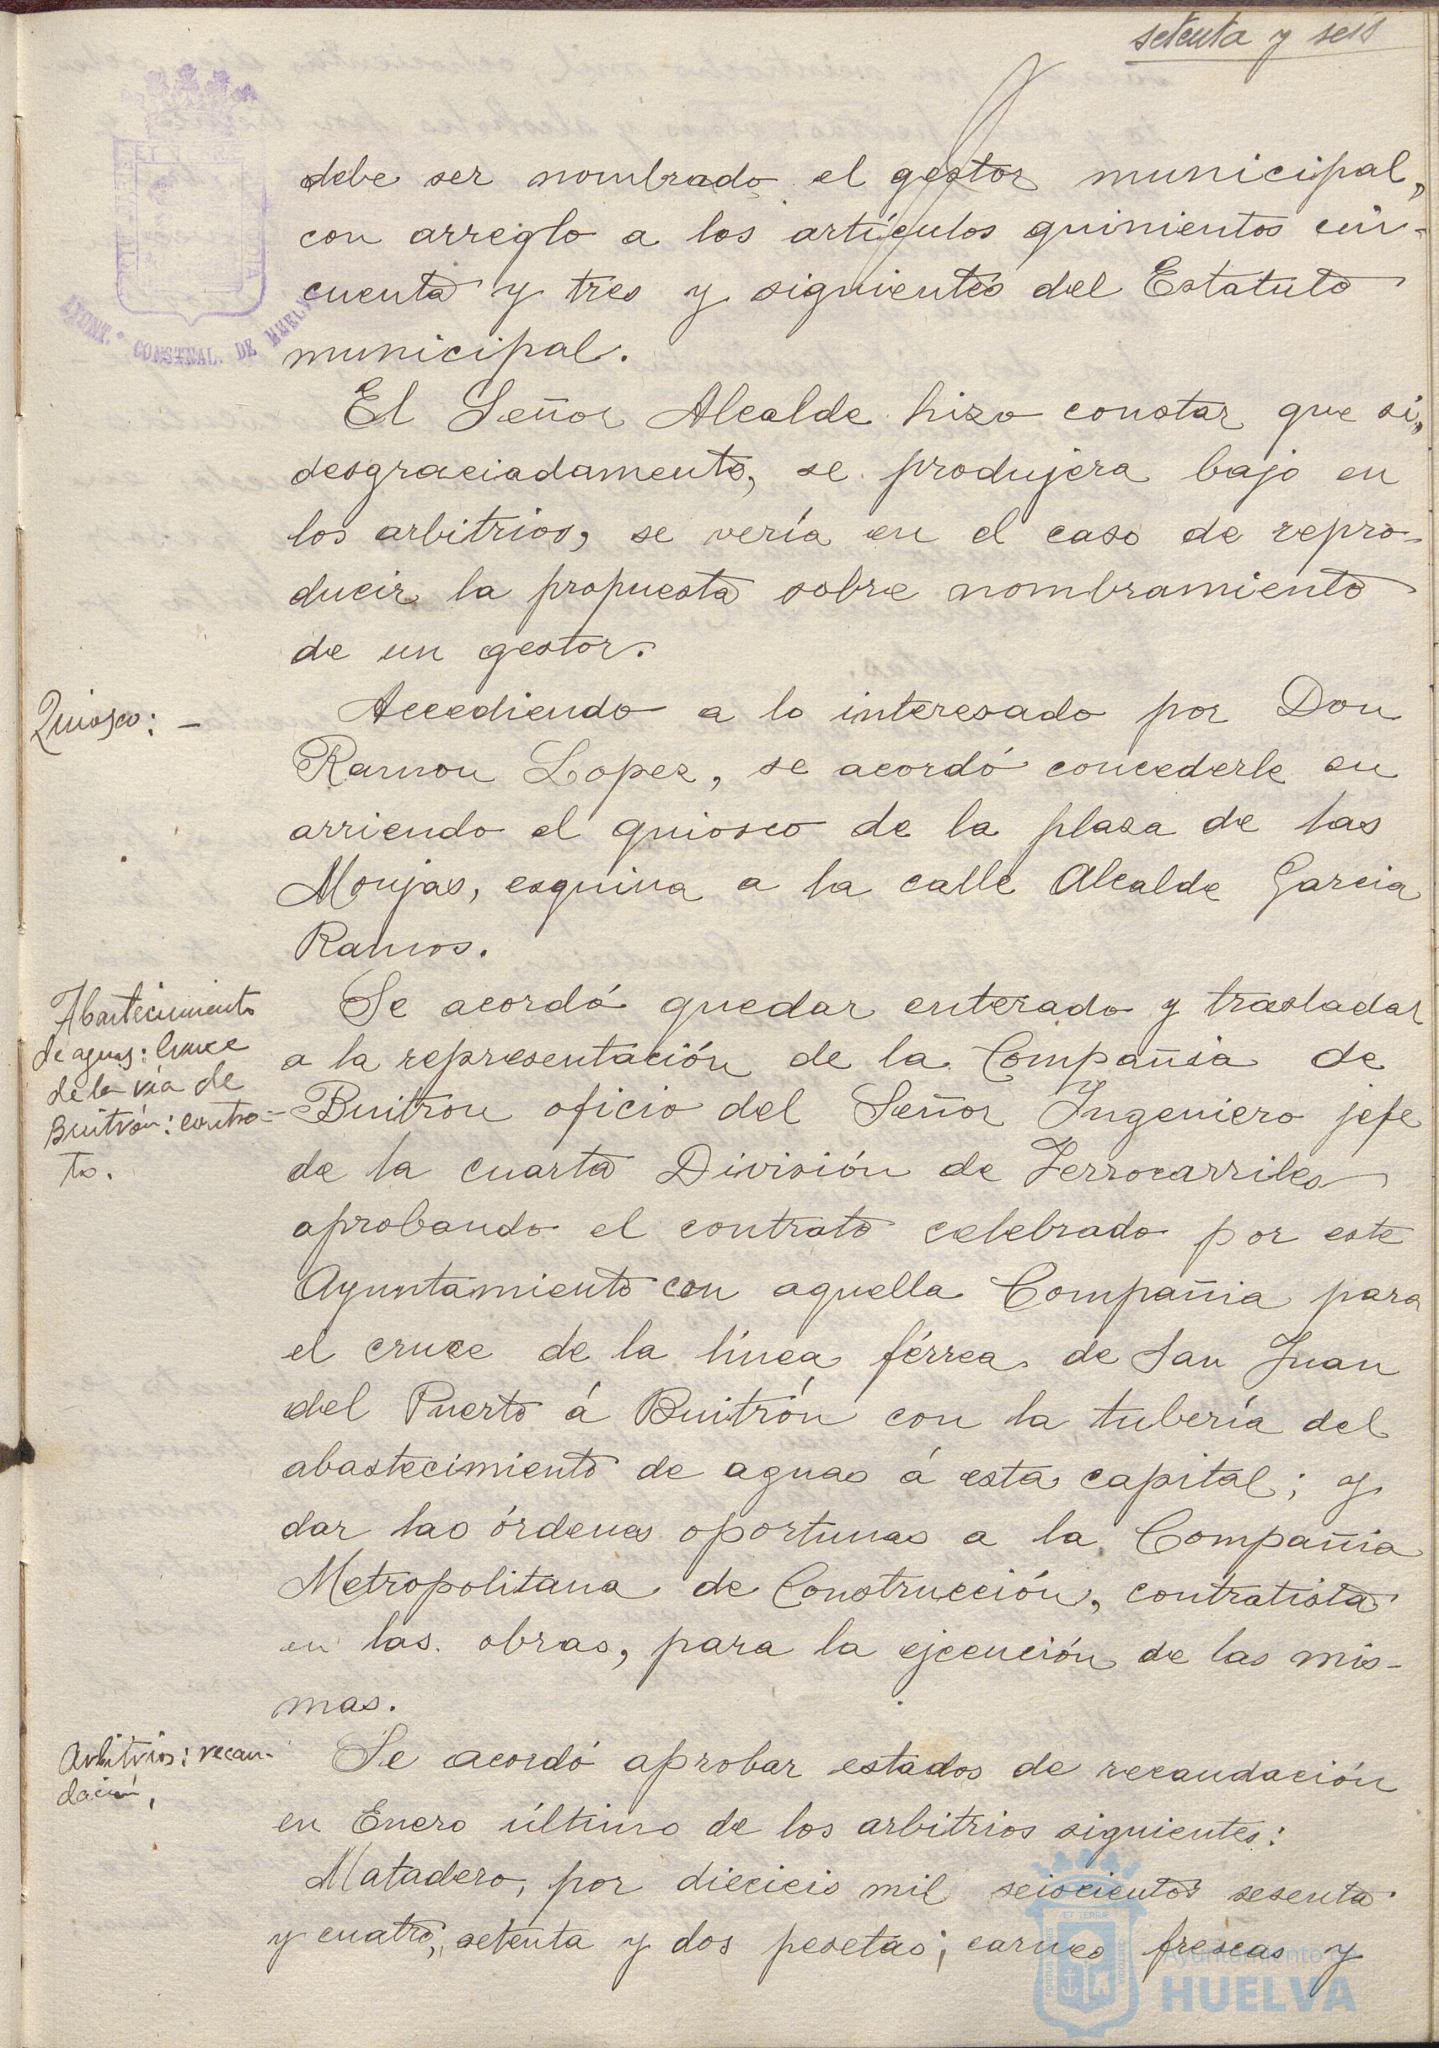 setenta y seis
AYUNT.º CONSTNAL. DE HUELVA
debe ser nombrado el gestor municipal,
con arreglo a los artículos quinientos cin-
cuenta y tres y siguientes del Estatuto
municipal.
El Señor Alcalde hizo constar que si,
desgraciadamente, se produjera bajo en
los arbitrios, se vería en el caso de repro-
ducir la propuesta sobre nombramiento
de un gestor.
Quiosco: -
Accediendo a lo interesado por Don
Ramon Lopez, se acordó concederle en
arriendo el quiosco de la plaza de las
Monjas, esquina a la calle Alcalde Garcia
Ramos.
Abastecimiento
de aguas: Cruce
de la vía de
Buitrón: contra-
to.
Se acordó quedar enterado y trasladar
a la representación de la Compañia de
Buitron oficio del Señor Ingeniero jefe
de la cuarta División de Ferrocarriles
aprobando el contrato celebrado por este
Ayuntamiento con aquella Compañia para
el cruce de la línea férrea de San Juan
del Puerto á Buitrón con la tubería del
abastecimiento de aguas á esta capital; y
dar las órdenes oportunas a la Compañia
Metropolitana de Construcción, contratista
en las obras, para la ejecución de las mis-
mas.
Arbitrios: recau-
dación,
Se acordó aprobar estados de recaudación
en Enero último de los arbitrios siguientes:
Matadero, por dieciseis mil seiscientos sesenta
y cuatro, setenta y dos pesetas; carnes frescas y
Ayuntamiento de
HUELVA